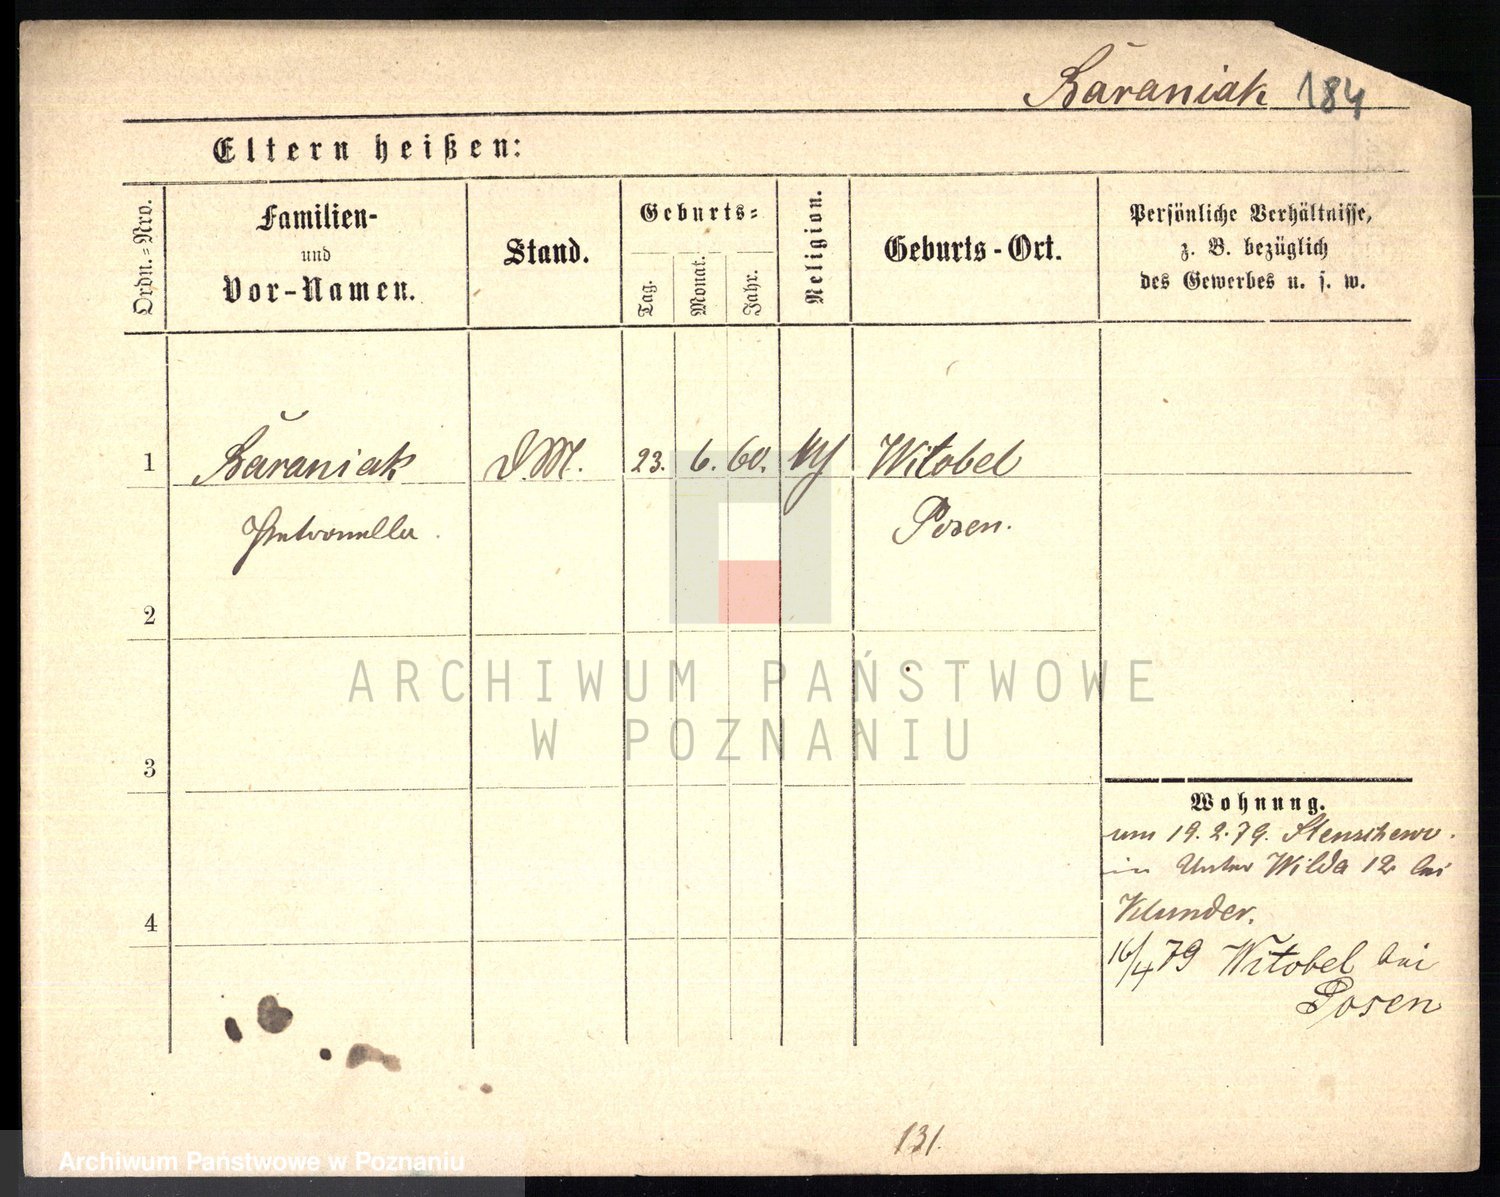 Baraniak 184
Eltern heißen:
Ordn.=Nro.
Familien-
und
Vor-Namen.
Stand.
Geburts=
Tag.
Monat.
Jahr.
Religion.
Geburts-Ort.
Persönliche Verhältnisse,
z. B. bezüglich
des Gewerbes u. s. w.
1 Baraniak D.M. 23. 6. 60. Witobel
Petronella. Posen.
2
3
4
Wohnung.
um 19.2.79. Stenschewo.
in Unter Wilda 12 bei
Klunder.
16/4 79 Witobel bei
Posen
131.
ARCHIWUM PAŃSTWOWE
W POZNANIU
Archiwum Państwowe w Poznaniu